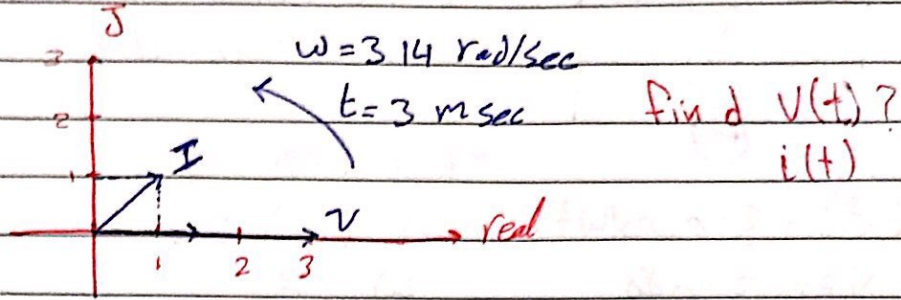 J
3
ω = 314 rad/sec
t = 3 msec
find V(t) ?
2
i(t)
1
I
V
real
1 2 3